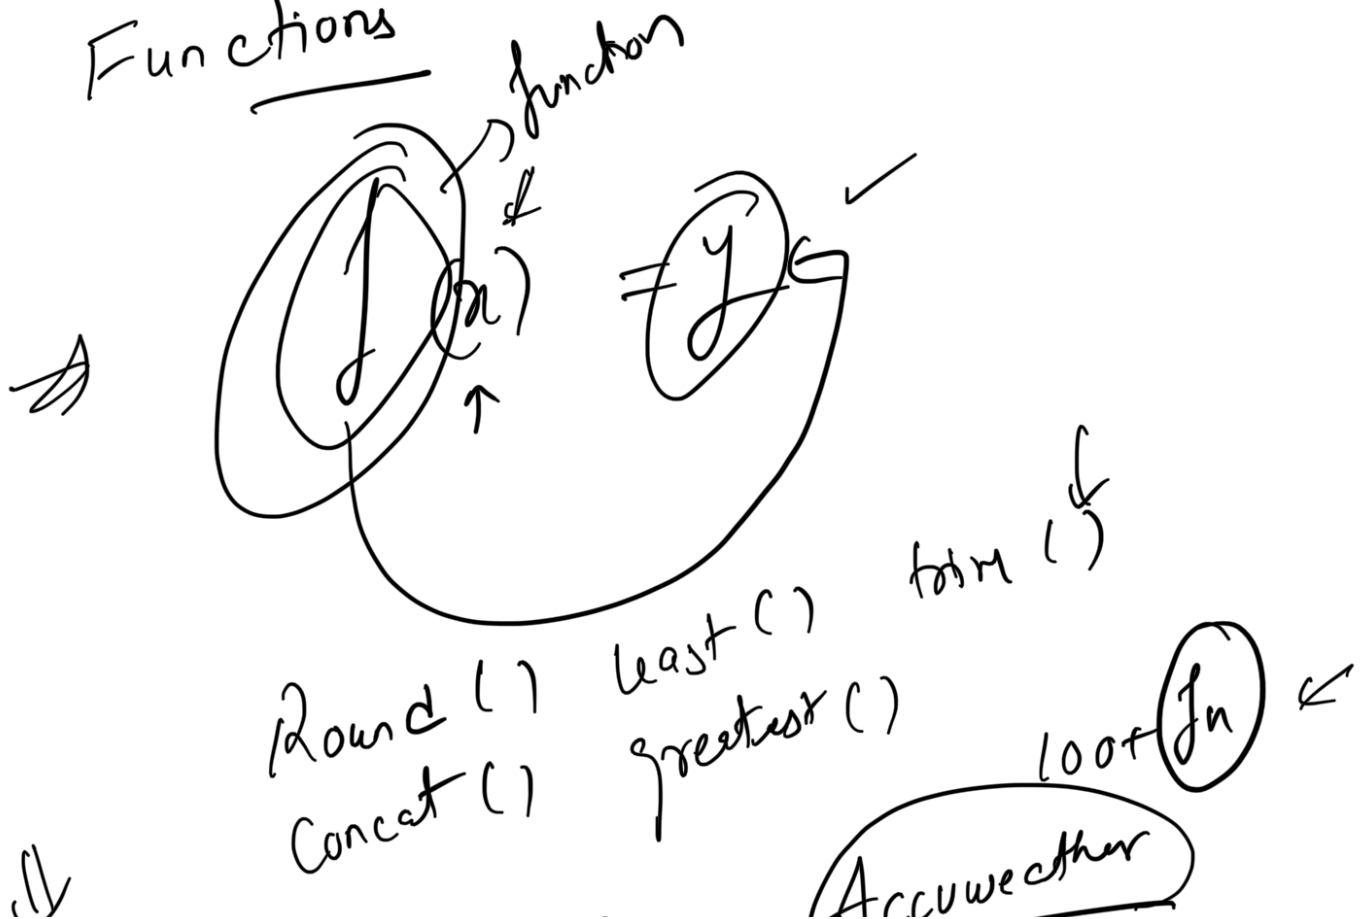 Functions
function
f(x) = y
trim ()
Round () least ()
Concat () greatest ()
100+ fn
Accuweather